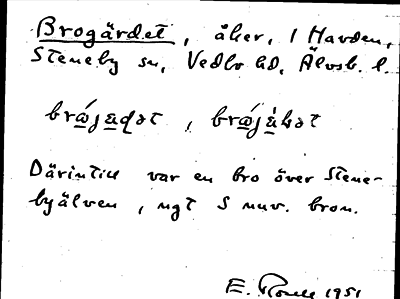 Brogärdet, åker, 1 Havden,
Steneby sn, Vedbo hd, Älvsb. l.
Därintill var en bro över Stene-
byälven, ngt S nuv. bron.
E. 1951